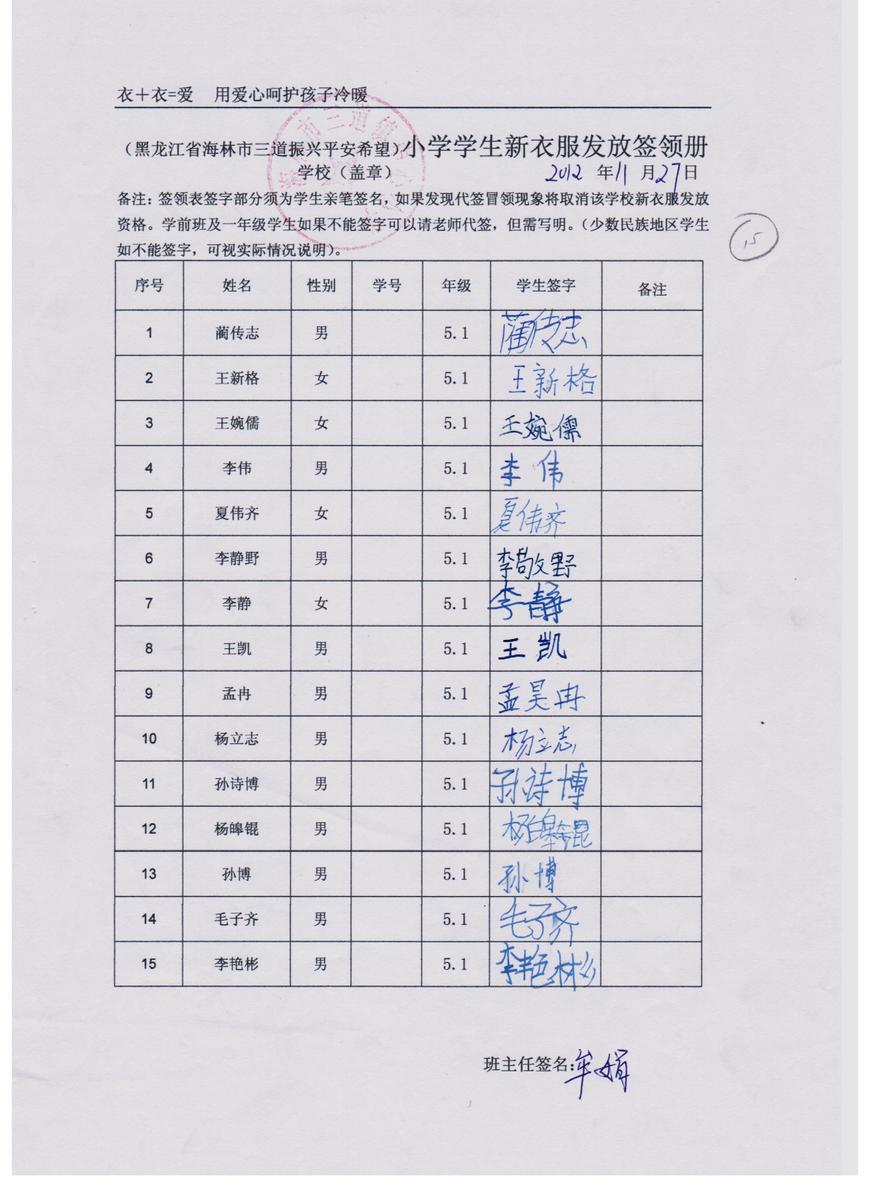 衣＋衣=爱 用爱心呵护孩子冷暖
（黑龙江省海林市三道振兴平安希望）小学学生新衣服发放签领册
学校（盖章） 2012 年 11 月 27 日
备注：签领表签字部分须为学生亲笔签名，如果发现代签冒领现象将取消该学校新衣服发放
资格。学前班及一年级学生如果不能签字可以请老师代签，但需写明。（少数民族地区学生
如不能签字，可视实际情况说明）。
15
序号 姓名 性别 学号 年级 学生签字 备注
1 蔺传志 男 5.1 蔺传志
2 王新格 女 5.1 王新格
3 王婉儒 女 5.1 王婉儒
4 李伟 男 5.1 李伟
5 夏伟齐 女 5.1 夏伟齐
6 李静野 男 5.1 李敬野
7 李静 女 5.1 李静
8 王凯 男 5.1 王凯
9 孟冉 男 5.1 孟昊冉
10 杨立志 男 5.1 杨立志
11 孙诗博 男 5.1 孙诗博
12 杨皞锟 男 5.1 杨皞锟
13 孙博 男 5.1 孙博
14 毛子齐 男 5.1 毛子齐
15 李艳彬 男 5.1 李艳彬
班主任签名：牟娟